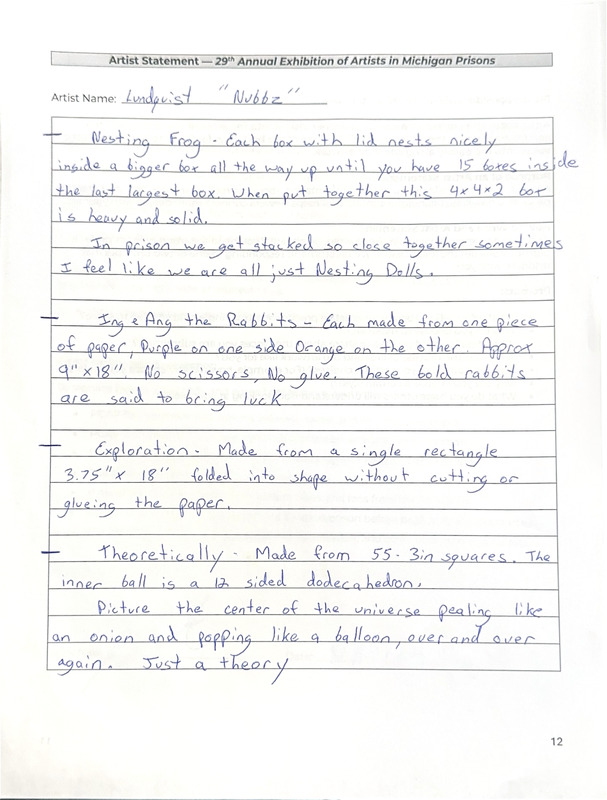 Artist Statement — 29th Annual Exhibition of Artists in Michigan Prisons
Artist Name: Lundquist "Nubbz"
— Nesting Frog - Each box with lid nests nicely
inside a bigger box all the way up until you have 15 boxes inside
the last largest box. When put together this 4x4x2 box
is heavy and solid.
In prison we get stacked so close together sometimes
I feel like we are all just Nesting Dolls.
— Ing & Ang the Rabbits - Each made from one piece
of paper, Purple on one side Orange on the other. Approx
9" x 18" No scissors, No glue. These bold rabbits
are said to bring luck
— Exploration - Made from a single rectangle
3.75" x 18" folded into shape without cutting or
glueing the paper.
— Theoretically - Made from 55 - 3in squares. The
inner ball is a 12 sided dodecahedron.
Picture the center of the universe pealing like
an onion and popping like a balloon, over and over
again. Just a theory
12